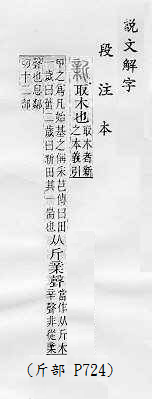 說文解字
段注本
新 取木也 取木者新
之本義引
申之為凡始基之稱采芑傳曰田
一歲曰菑二歲曰新田其一耑也
从斤亲聲 當作从斤木
辛聲非從亲
聲也息鄰
切十二部
(斤部 P724)